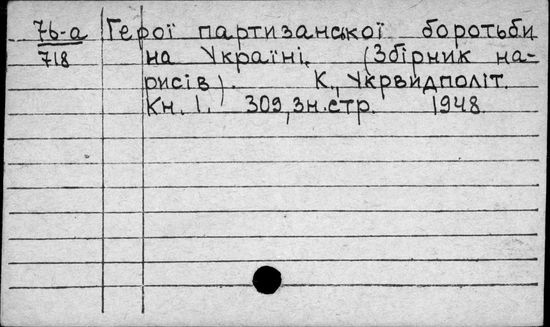 76-а Герої партизанської боротьби
718 на Україні. (Збірник на-
рисів). К., Укрвидполіт.
Кн. 1. 309, 3н.стр. 1948.